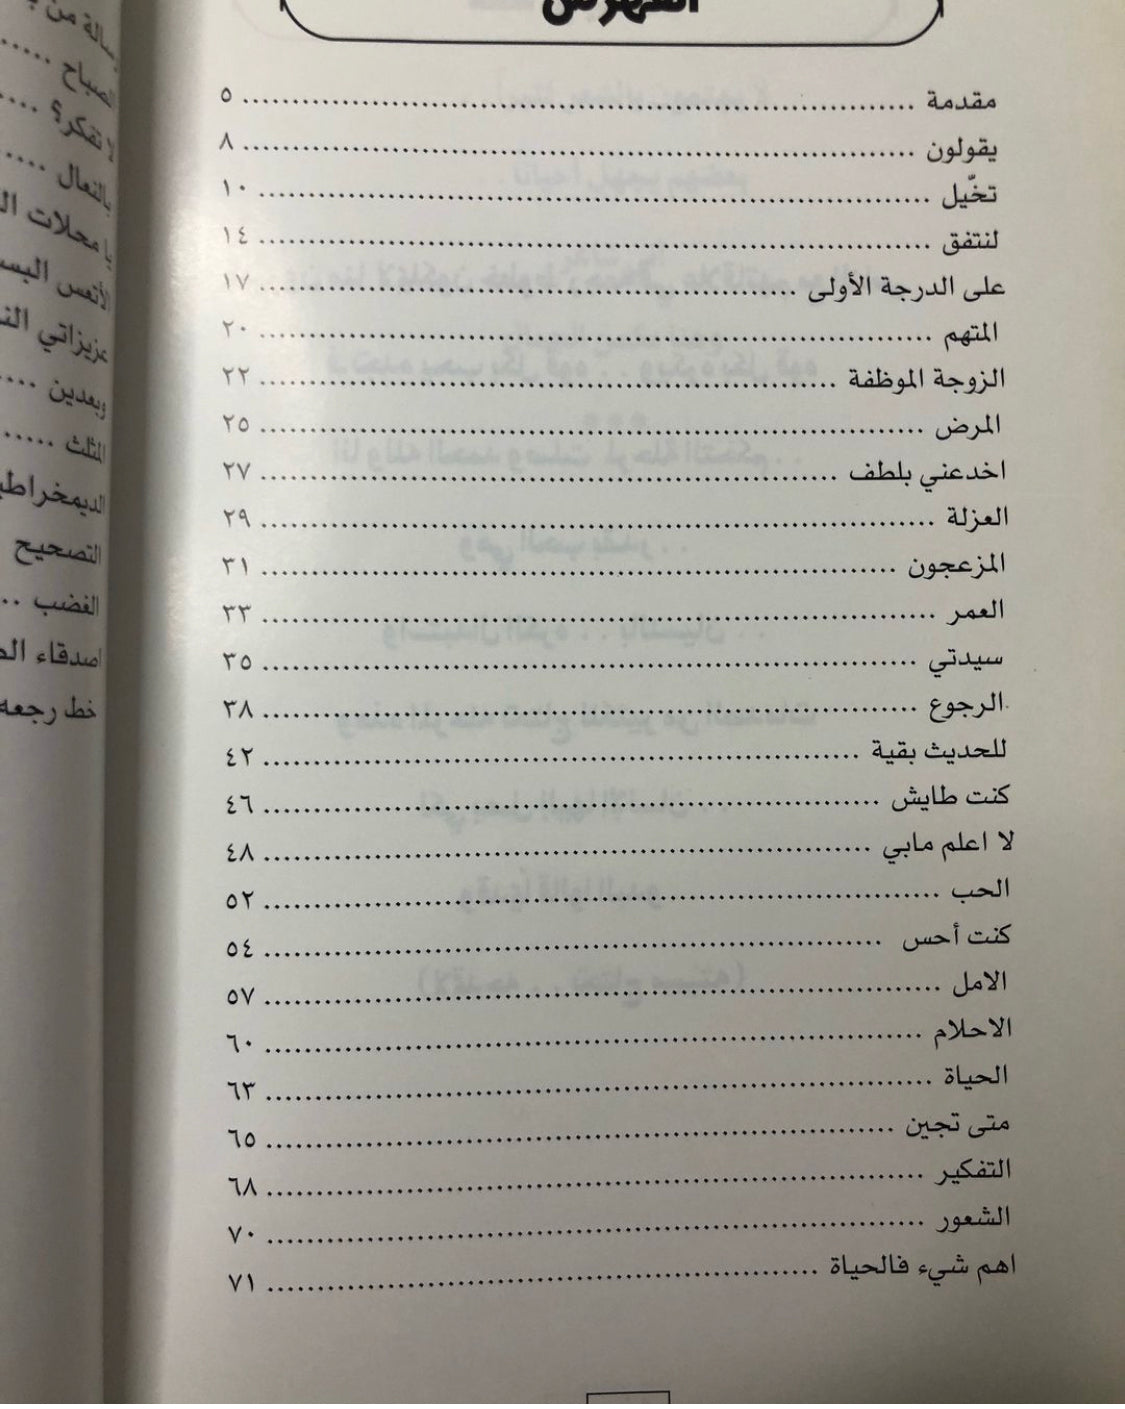 الفهرس
مقدمة ........ ٥
يقولون ........ ٨
تخّيل ........ ١٠
لنتفق ........ ١٤
على الدرجة الأولى ........ ١٧
المتهم ........ ٢٠
الزوجة الموظفة ........ ٢٢
المرض ........ ٢٥
اخدعني بلطف ........ ٢٧
العزلة ........ ٢٩
المزعجون ........ ٣١
العمر ........ ٣٣
سيدتي ........ ٣٥
الرجوع ........ ٣٨
للحديث بقية ........ ٤٢
كنت طايش ........ ٤٦
لا اعلم مابي ........ ٤٨
الحب ........ ٥٢
كنت أحس ........ ٥٤
الامل ........ ٥٧
الاحلام ........ ٦٠
الحياة ........ ٦٣
متى تجين ........ ٦٥
التفكير ........ ٦٨
الشعور ........ ٧٠
اهم شيء فالحياة ........ ٧١
رسالة من
الصباح ......
لا تفكر؟ ....
بالنعال ....
يا محلات
الأتعس
عزيزاتي
وبعدين ....
المثلث .....
التصحيح
الغضب ..
اصدقاء
خط رجعه